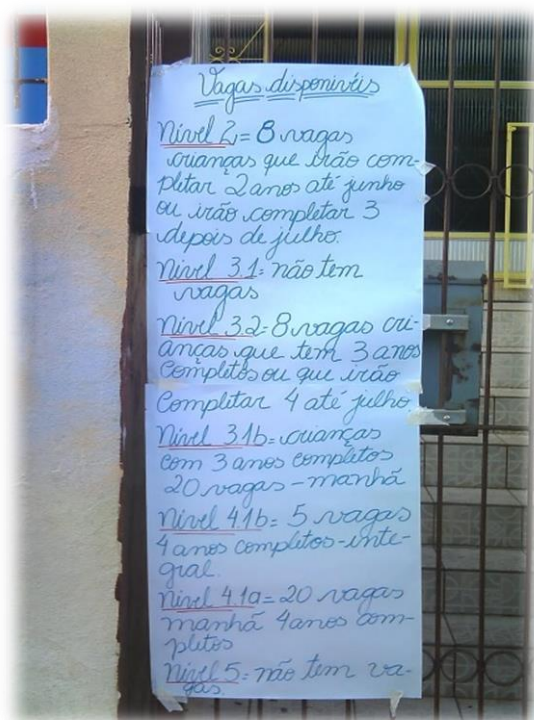 Vagas disponivéis
Nível 2 = 8 vagas
crianças que irão com-
pletar 2 anos até junho
ou irão completar 3
depois de julho.
Nível 3.1 = não tem
vagas
Nível 3.2 = 8 vagas cri-
anças que tem 3 anos
completos ou que irão
completar 4 até julho
Nível 3.1b = crianças
com 3 anos completos
20 vagas - manhã
Nível 4.1b = 5 vagas
4 anos completos - inte-
gral.
Nível 4.1a = 20 vagas
manhã 4 anos com-
pletos
Nível 5 = não tem va-
gas.